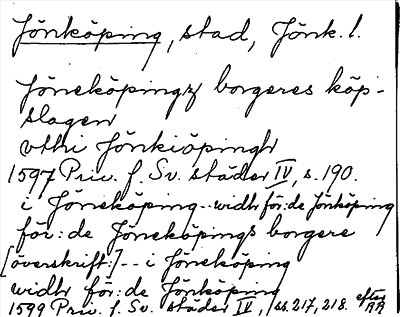 Jönköping, stad, Jönk. l.
Jöneköpingz borgeres köp-
slagen
vthi Jönkiöpingh
1597 Priv. f. Sv. städer IV, s. 190.
i Jöneköping -- widh för:de Jönköping
för:de Jöneköpings borgere
[överskrift:] -- i Jöneköping
widh för:de Jönköping
1599 Priv. f. Sv. städer IV, ss. 217, 218. efter AR